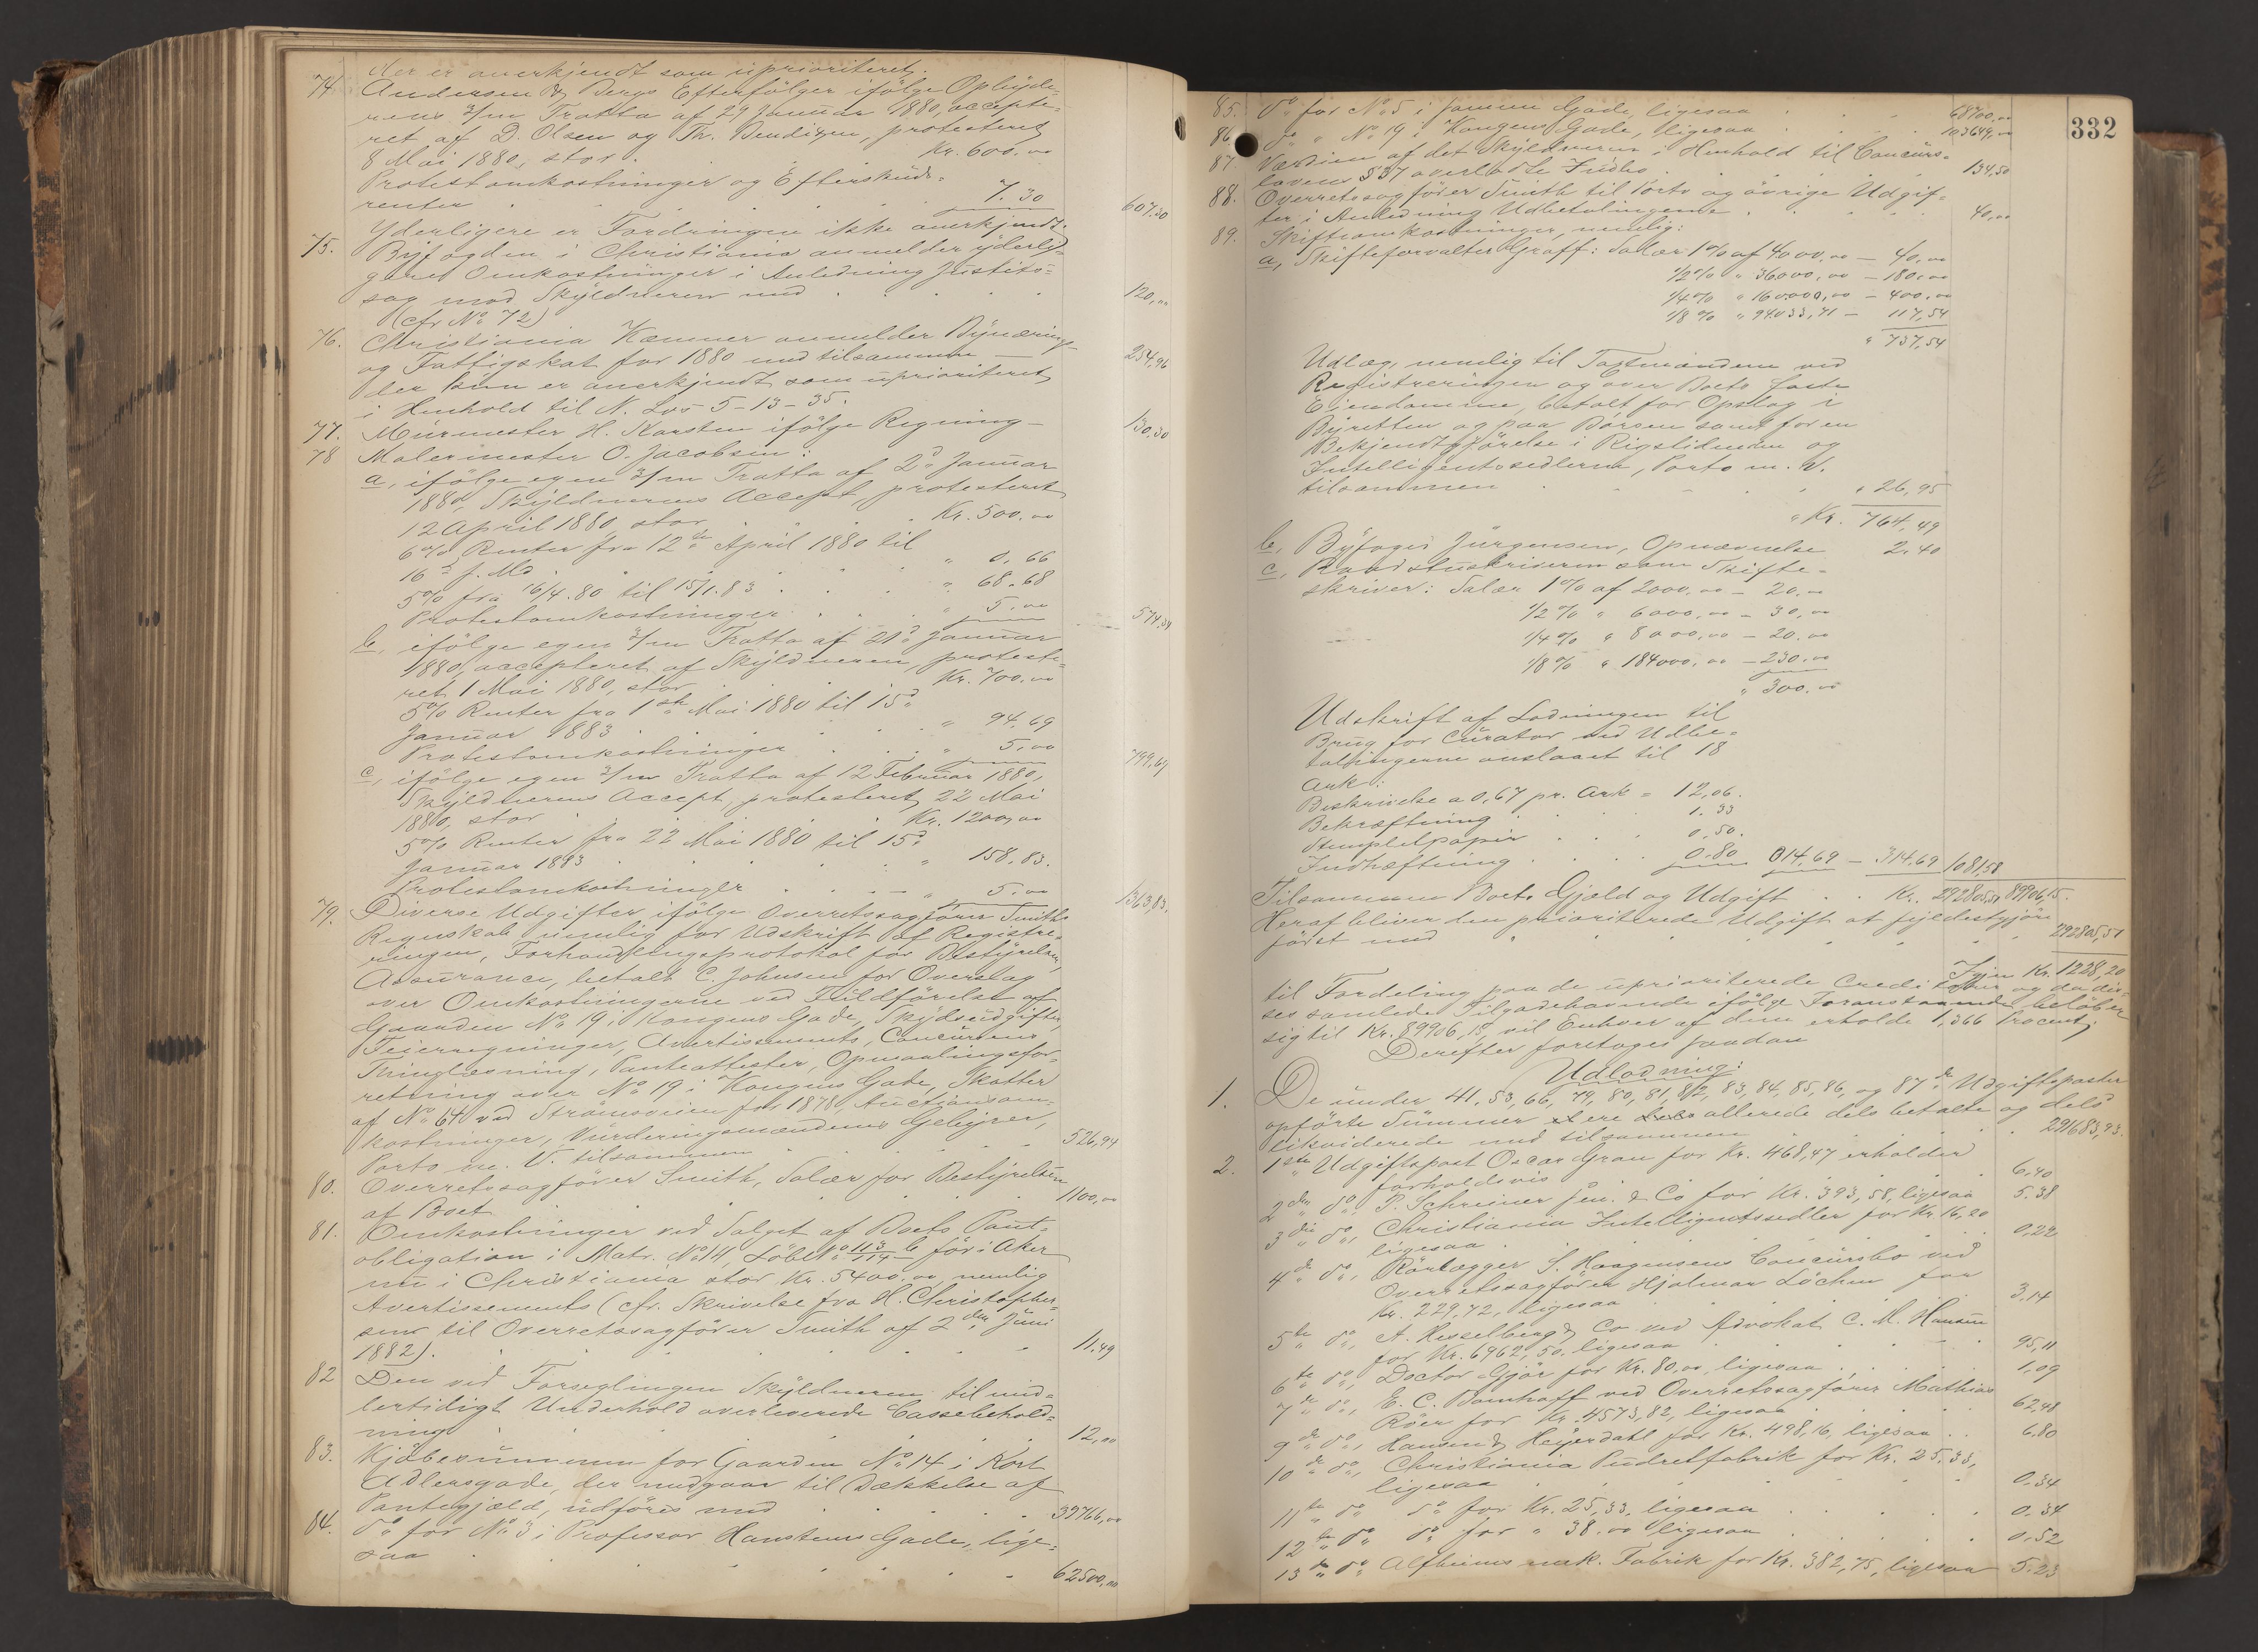 der er anerkjendt som uprioriteret.
74. Andersen & Bergs Efterfölger ifölge Ophyde-
rens 3/m Tratta af 29 Januar 1880, accepte-
ret af D. Olsen og Th. Bendixen, protesteret
8 Mai 1880, stor . Kr. 600.00
Protestomkostninger og Efterskuds-
renter . . . . 7.30 607.30
Yderligere er Fordringen ikke anerkjendt.
75. Byfogden i Christiania anmelder yderli-
gere Omkostninger i Anledning Justits-
sag mod Skyldneren med . . . . . 120,00
(cfr No 72)
76. Christiania Kæmner anmelder Bynærings-
og Fattigskat for 1880 med tilsammen — 254,96
der kun er anerkjendt som uprioriteret
i Henhold til N. Lov 5-13-35.
77. Murmester H. Karsten ifölge Regning — 130,30
78 Malermester O. Jacobsen:
a, ifölge egen 3/m Tratta af 2den Januar
1880, Skyldnerens Accept, protesteret
12 April 1880, stor . . . Kr. 500.00
6% Renter fra 12te April 1880 til
16de s. Md. . . . . " 0,66
5% fra 16/4.80 til 15/1.83 . . . " 68.68
Protestomkostninger . . . " 5.00 574,34
b, ifölge egen 3/m Tratta af 21de Januar
1880, accepteret af Skyldneren, proteste-
ret 1 Mai 1880, stor . . . Kr. 700.00
5% Renter fra 1ste Mai 1880 til 15de
Januar 1883 . . . . " 94.69
Protestomkostninger . . . " 5.00 799,69
c, ifölge egen 3/m Tratta af 12 Februar 1880,
Skyldnerens Accept, protesteret 22 Mai
1880, stor . . . . Kr. 1200,00
5% Renter fra 22 Mai 1880 til 15de
Januar 1883 . . . . " 158.83.
Protestomkostninger . . . — " 5.00 1363,83.
79. Diverse Udgifter ifölge Overretssagförer Smiths
Regnskab nemlig for Udskrift af Registre-
ringen, Forhandlingsprotokol for Bestyrelsen,
Assurance, betalt C. Johnsen for Overslag
over Omkostningerne ved Fuldförelse af
Gaarden No 19 i Kongens Gade, Skydsudgifter,
Feierregninger, Avertissements, Concursens
Thinglæsning, Panteattester, Opmaalingsfor-
retning over No 19 i Kongens Gade, Skatter
af No 64 ved Strömsveien for 1878, Auctionsom-
kostninger, Vurderingsmændenes Gebyrer,
Porto m. V. tilsammen . . . . . 526,94
80. Overretssagförer Smith, Salær for Bestyrelsen
af Boet . . . . . . . 1100,00
81. Omkostninger ved Salget af Boets Pant-
obligation i Matr. No 14, Löbe No 113/114 b för i Aker
nu i Christiania stor Kr. 5400.00, nemlig
Avertissements (cfr. Skrivelse fra H. Christopher-
sens til Overretssagförer Smith af 2den Juni
1882). . . . . . . . 11.49
82 Den ved Forseglingen Skyldneren til mid-
lertidigt Underhold overleverede Cassebehold-
ning . . . . . . . 12,00
83. Kjöbesummen for Gaarden No 14 i Kort
Adlersgade, der medgaar til Dækkelse af
Pantegjæld, udföres med . . . . . 39766,00
84. do for No 3 i Professor Hansteens Gade, lige-
saa . . . . . . . 62500,00
332
85. do for No 5 i samme Gade, ligesaa . . . 68700,00
86. do " No 19 i Kongens Gade, ligesaa . . . 103644,00
87 Værdien af det Skyldneren i Henhold til Concurs-
lovens § 37 overladte Indbo . . . . . 134,50
88. Overretssagförer Smith til Porto og övrige Udgif-
ter i Anledning Udbetalingerne . . . . 40,00
89. Skifteomkostninger, nemlig:
a, Skifteforvalter Graff: Salær 1% af 4000,00 — 40,00
1/2% " 36000,00 — 180,00
1/4% " 160000,00 — 400,00
1/8% " 94033,71 — 117,54
" 737,54
Udlæg, nemlig til Taxtmændene ved
Registreringen og over Boets faste
Eiendomme, betalt for Opslag i
Byretten og paa Börsen samt for en
Bekjendtgjörelse i Rigstidenden og
Intelligentssedlerne, Porto m. V.
tilsammen . . . . " 26,95
" Kr. 764,49
b, Byfoged Jürgensen, Opnævnelse 2.40
c, Raadstueskriveren som Skifte-
skriver: Salær 1% af 2000.00 — 20.00
1/2% " 6000,00 — 30,00
1/4% " 8000,00 — 20.00
1/8% " 184000,00 — 230.00
" 300.00
Udskrift af Lodningen til
Brug for Curator ved Udbe-
talingerne anslaaet til 18
Ark:
Beskrivelse a 0,67 pr. Ark = 12,06.
Bekræftning . . . . 1.33
Stempletpapir . . . 0.50.
Indhæftning . . . . 0.80 014.69 — 314.69 1081,58
Tilsammen Boets Gjæld og Udgift . . Kr. 292805,51 89906,15.
Heraf bliver den prioriterede Udgift at fyldestgjöre
först med . . . . . . . . 292805,51
Igjen Kr. 1228,20
til Fordeling paa de uprioriterede Creditorer og da dis-
ses samlede Tilgodehavende ifölge Foranstaaende belöber
sig til Kr. 89906,15, vil Enhver af dem erholde 1,366 Procent.
Derefter foretoges saadan
Udlodning:
1. De under 41, 53, 66, 79, 80, 81, 82, 83, 84, 85, 86, og 87de Udgiftsposter
opförte Summer ere allerede dels betalte og dels
likviderede med tilsammen . . . . . 291683,93.
2. 1ste Udgiftspost Oscar Gran for Kr. 468,47 erholder
forholdsvis . . . . . . 6.40
2den do, P. Schreiner jun. & Co for Kr. 393,58, ligesaa 5.38
3die do, Christiania Intelligentssedler for Kr. 16,20
ligesaa . . . . . . . 0,22
4de do, Rörlægger S. Haagensens Concursbo ved
Overretssagförer Hjalmar Löchen for
Kr. 229,72, ligesaa . . . . . 3,14
5te do, A. Hesselberg & Co ved Advokat C. M. Hansen
for Kr. 6962,50. ligesaa . . . . . 95,11
6te do, Doctor Gjör for Kr. 80.00, ligesaa . . . 1.09
7de do, E. C. Bomhoff ved Overretssagförer Mathias
Röer for Kr. 4573,82, ligesaa . . . . 62,48
9de do, Hansen & Heyerdahl for Kr. 498,16, ligesaa . . 6.80
10de do, Christiania Pudretfabrik for Kr. 25.33,
ligesaa . . . . . . . 0.34
11te do do for Kr. 25,33, ligesaa . . . . 0.34
12te do do for " 38.00 ligesaa . . . . 0.52
13de do Alfheims mek. Fabrik for Kr. 382,75, ligesaa 5.23